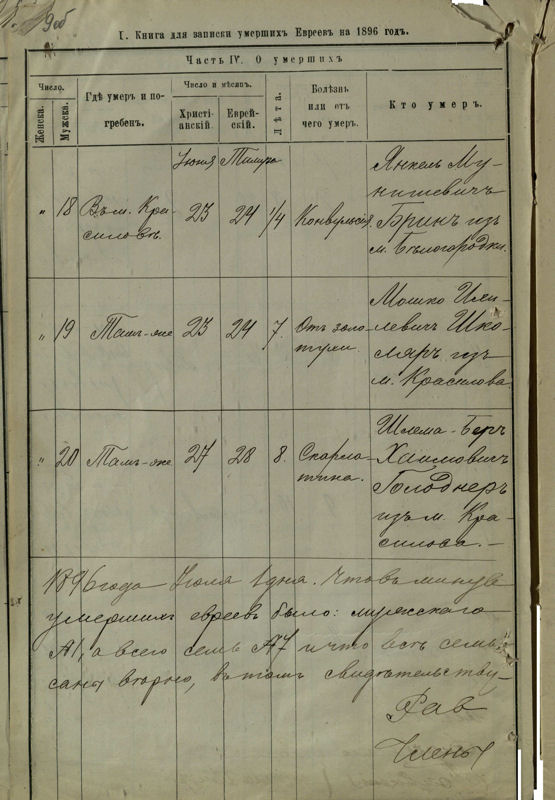 I. Книга для записки умершихъ Евреевъ на 1896 годъ.
Часть IV. О умершихъ
Число.
Женска.
Мужска.
Гдѣ умеръ и по-
гребенъ.
Число и мѣсяцъ.
Христі-
анскій.
Еврей-
скій.
Лѣта.
Болѣзнь
или отъ
чего умеръ.
Кто умеръ.
Іюня
" 18
Въ м. Кра-
силовѣ.
23
24
1/4
Конвульсія
Янкель Му-
нишевичъ
Бринъ изъ
м. Бѣлогородки.
" 19
Тамъ-же
23
24
7.
Отъ золо-
тухи.
Мошко
левичъ Шко-
ляръ изъ
м. Красилова
" 20
Тамъ-же
27
28
8.
Скарла-
тина.
Шлема-Беръ
Хаимовичъ
Голоднеръ
изъ м. Кра-
силова.-
1896 года Іюля 1 дня. Что въ минув
умершихъ евреевъ было: мужскаго
а всего семь и что всѣ семь
вѣрно, въ томъ свидѣтельству-
Рав
Члены